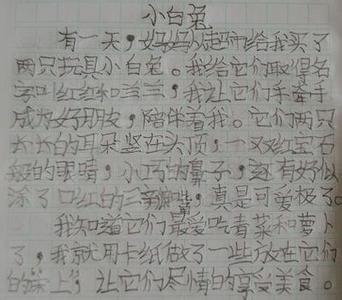 小白兔
有一天，妈妈从超市给我买了
两只玩具小白兔。我给它们取得名
字叫红红和兰兰，我让它们手牵手
成为好朋友，陪伴着我。它们两只
大大的耳朵竖在头顶，一双红宝石
般的眼睛，小巧的鼻子，还有好似
涂了口红的三瓣嘴，真是可爱极了。
我知道它们最爱吃青菜和萝卜
了，我就用卡纸做了一些放在它们
的桌上，让它们尽情的享受美食。